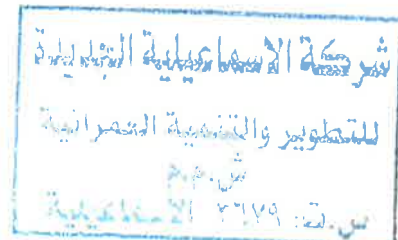 شركة الاسماعيلية الجديدة
للتطوير والتنمية العمرانية
ش.م.م
س.ت: ٣٦١٧٩ الاسماعيلية